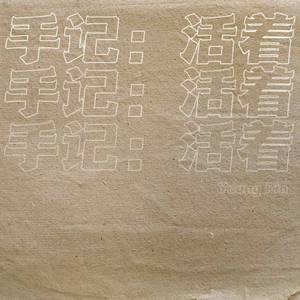 手记：活着
手记：活着
手记：活着
Young Xin